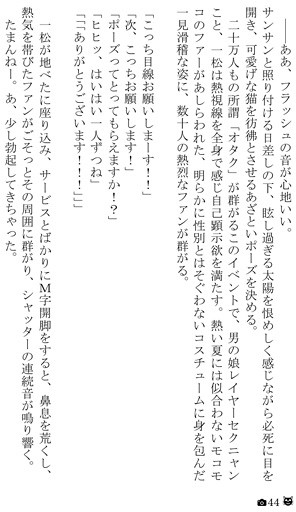 ――ああ、フラッシュの音が心地いい。
サンサンと照り付ける日差しの下、眩し過ぎる太陽を恨めしく感じながら必死に目を
開き、可愛げな猫を彷彿とさせるあざといポーズを決める。
二十万人もの所謂「オタク」が群がるこのイベントで、男の娘レイヤーセクニャン
こと、一松は熱視線を全身で感じ自己顕示欲を満たす。熱い夏には似合わないモコモ
コのファーがあしらわれた、明らかに性別とはそぐわないコスチュームに身を包んだ
一見滑稽な姿に、数十人の熱烈なファンが群がる。
「こっち目線お願いしまーす！！」
「次、こっちお願いします！」
「ポーズってとってもらえますか！？」
「ヒヒッ、はいはい一人ずつね」
「「「ありがとうございます！！！」」」
一松が地べたに座り込み、サービスとばかりにＭ字開脚をすると、鼻息を荒くし、
熱気を帯びたファンがごそっとその周囲に群がり、シャッターの連続音が鳴り響く。
たまんねー。あ、少し勃起してきちゃった。
44